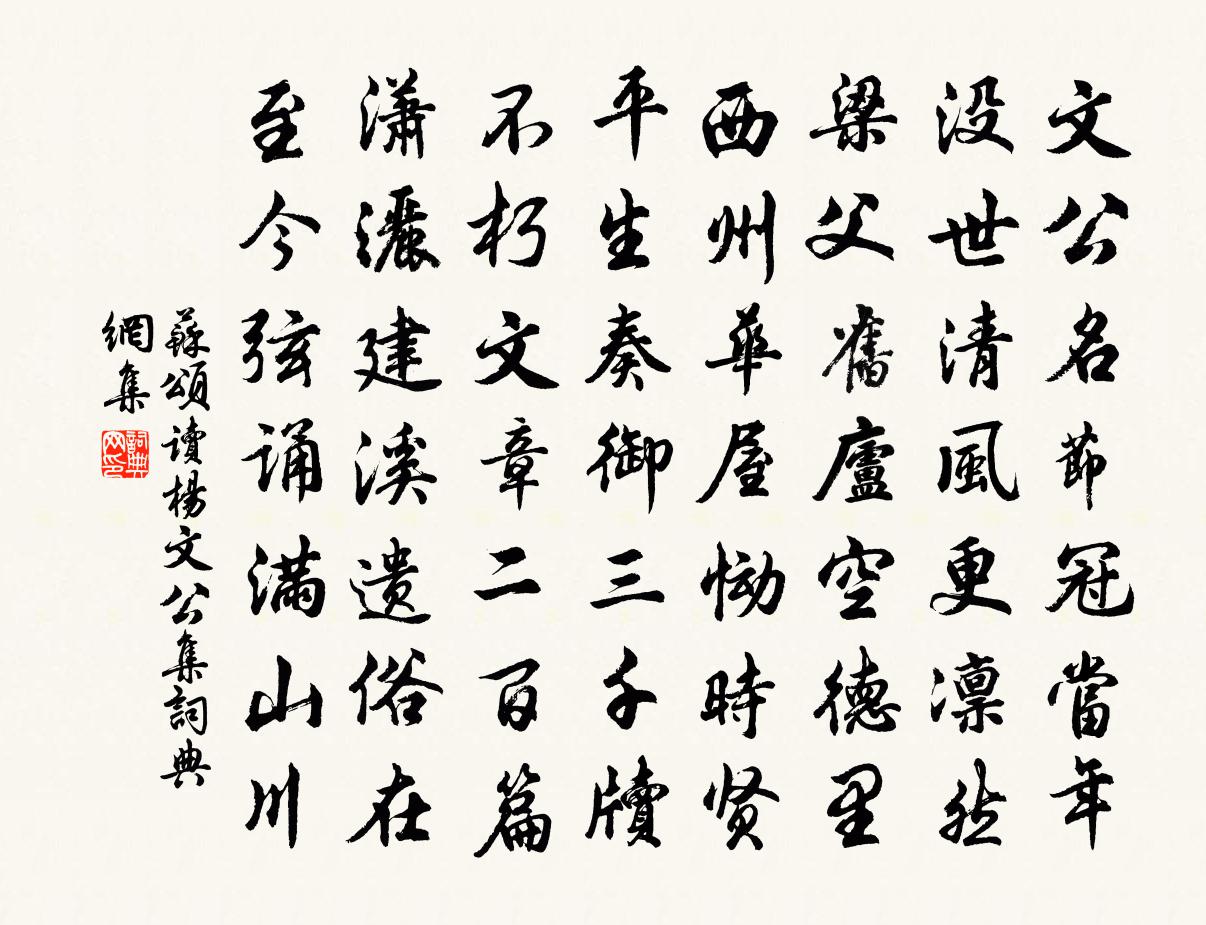 文公名節冠當年
没世清風更凛然
梁父舊廬空德里
西州華屋恸時贤
平生奏御三千牘
不朽文章二百篇
瀟灑建溪遗俗在
至今弦诵滿山川
蘇頌讀楊文公集詞典
網集
詞典
网印